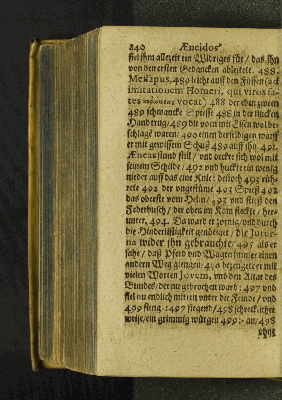 840 Æneidos
fiel ihm allzeit ein Widriges für / das ihn
von den ersten Gedancken ableitete. 488.
Messapus, 489 leicht auff den Füssen (ad
imitationem Homeri, qui viros fa-
res vocat) 488 der eben zween
489 schwancke Spiesse 488 in der lincken
Hand trug / 489 die vorn mit Eisen wol be-
schlagē waren: 490 einen derselbigen warff
er mit gewissem Schuß 489 auff ihn. 491.
Æneas stund still / und deckte sich wol mit
seinem Schilde / 492 und huckte ein wenig
nieder auff das eine Knie: dennoch 492 rüh-
rete 492 der ungestüme 493 Spieß 492
das oberste vom Helm / 493 und stieß den
Federbusch / der oben im Kam steckte / her-
unter. 494. Da ward er zornig / und durch
die Hinderlistigkeit genötiget / die Jutur-
na wider ihn gebrauchte / 497 als er
sahe / daß Pferd und Wagen immer einen
andern Weg giengen: 496 bezeigete er mit
vielen Worten Jovem, und den Altar des
Bundes / der nu gebrochen ward: 497 und
fiel nu endlich mitten unter die Feinde / und
499 fieng: 497 siegend / 498 schrecklicher
weise / ein grimmig würgen 499: an / 498